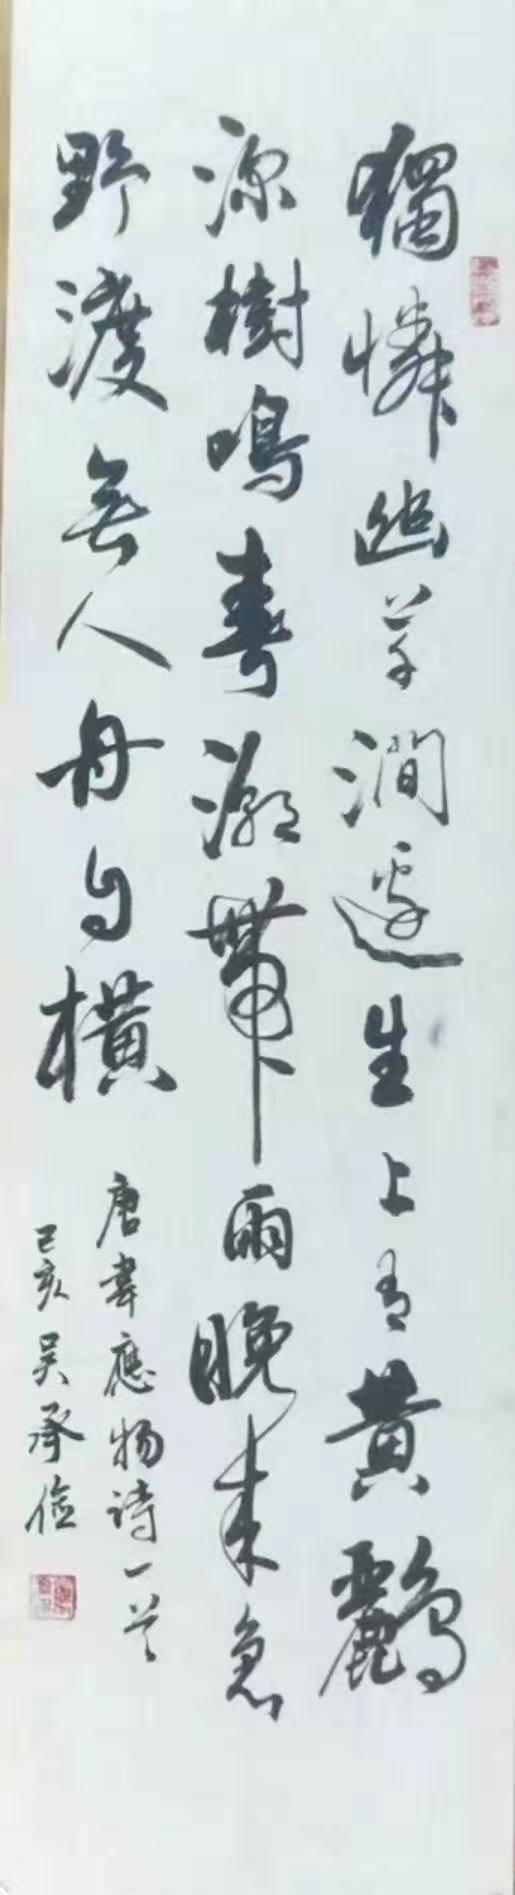 獨憐幽草澗邊生上有黄鸝
深樹鳴春潮带雨晚来急
野渡無人舟自橫
唐韋應物詩一首
己亥吴承俭